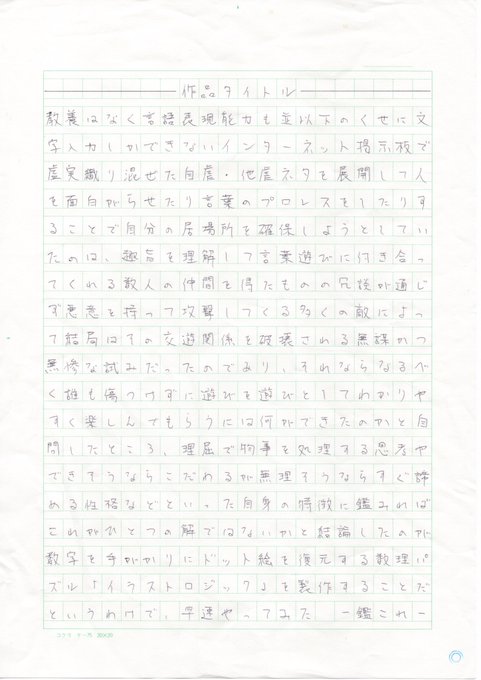 作品タイトル
教養はなく言語表現能力も並以下のくせに文
字入力しかできないインターネット掲示板で
虚実織り混ぜた自虐・他虐ネタを展開して人
を面白がらせたり言葉のプロレスをしたりす
ることで自分の居場所を確保しようとしてい
たのは、趣旨を理解して言葉遊びに付き合っ
てくれる数人の仲間を得たものの冗談が通じ
ず悪意を持って攻撃してくる多くの敵によっ
て結局はその交遊関係を破壊される無謀かつ
無惨な試みだったのであり、それならなるべ
く誰も傷つけずに遊びを遊びとしてわかりや
すく楽しんでもらうには何ができたのかと自
問したところ、理屈で物事を処理する思考や
できそうならこだわるが無理そうならすぐ諦
める性格などといった自身の特徴に鑑みれば
これがひとつの解ではないかと結論したのが
数字を手がかりにドット絵を復元する数理パ
ズル「イラストロジック」を製作することだ
というわけで、早速やってみた　－鑑これ－
コクヨ ケ－75 20×20